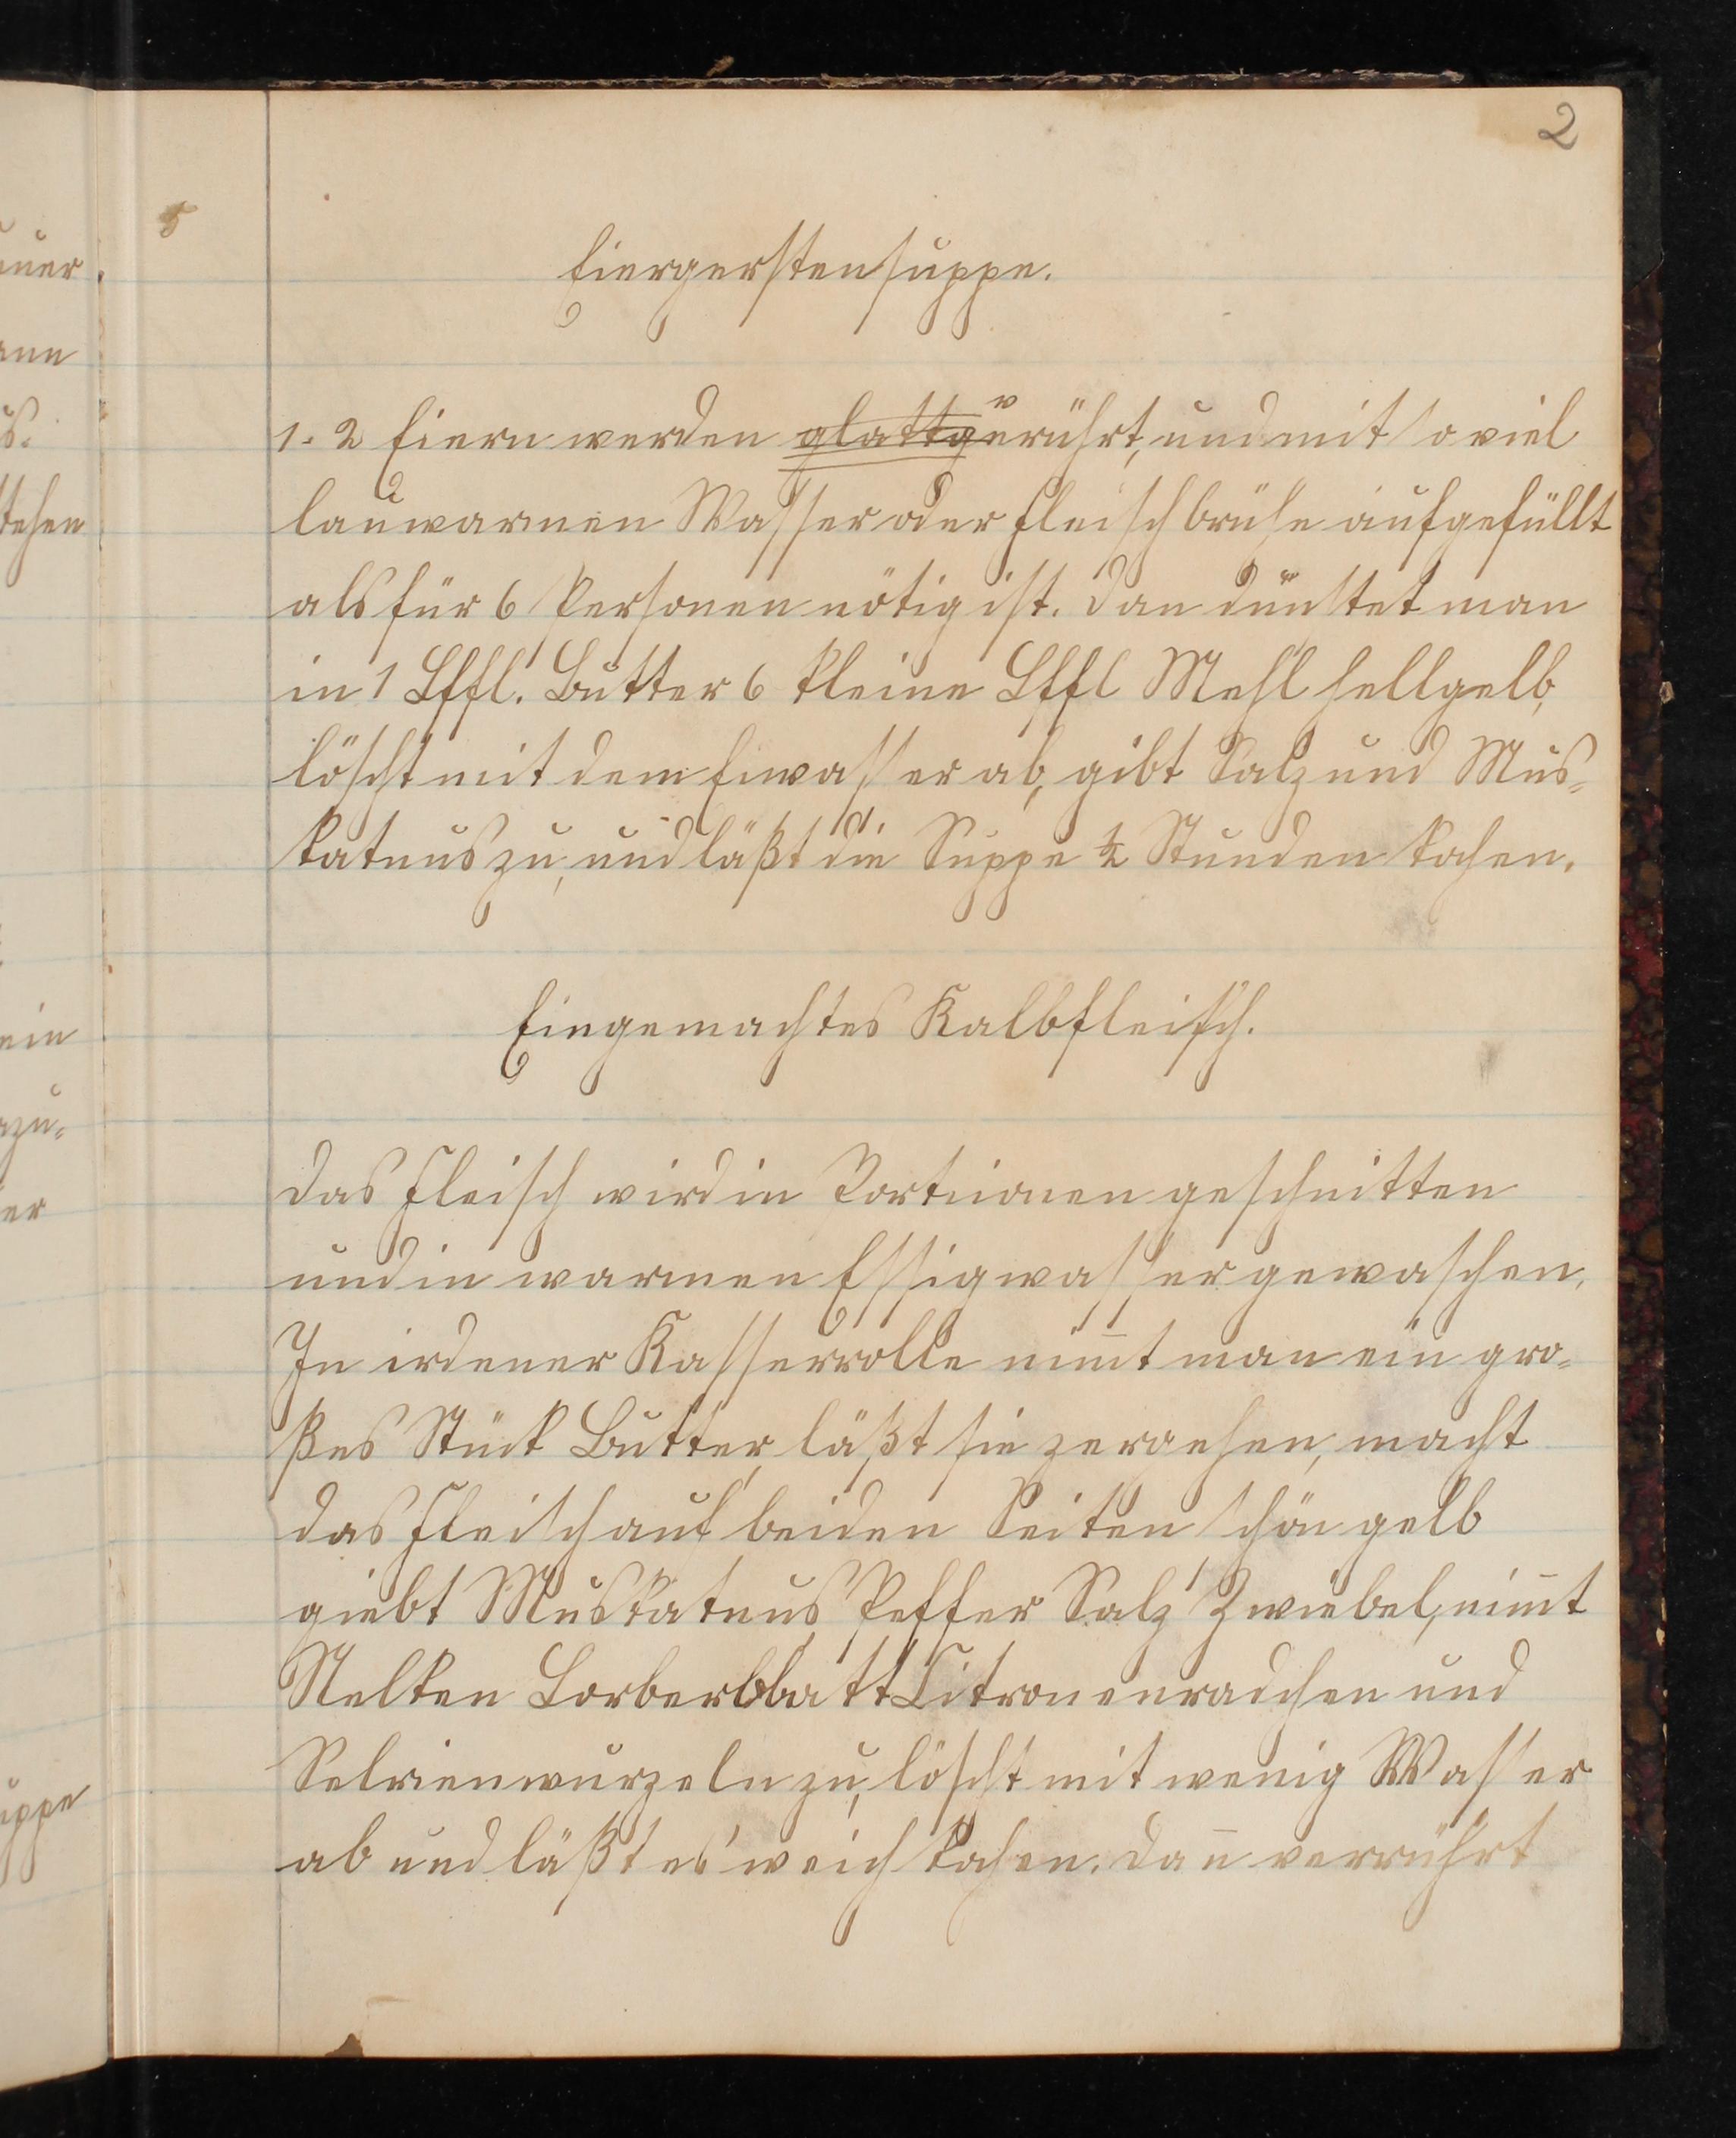 2
Eiergerstensuppe.
1-2 Eiern werden glattgerührt, und mit so viel
lauwarmen Wasser oder Fleischbrühe aufgefüllt
als für 6 Personen nötig ist. Dan dünstet man
in 1 Lffl. Butter 6 kleine Lffl Mehl hellgelb,
löscht mit dem Eiwasser ab, gibt Salz und Mus=
katnus zu, und läßt die Suppe ½ Stunden kochen.
Eingemachtes Kalbfleisch.
Das Fleisch wird in Portionen geschnitten
und in warmen Essigwasser gewaschen.
In irdener Kasserrolle nim̄t man ein gro=
ßes Stück Butter, läßt sie zergehen, macht
das Fleisch auf beiden Seiten schön gelb
giebt Muskatnus, Peffer Salz Zwiebel, nim̄t
Nelken Lorberblatt Citronenradchen und
Selrienwurzeln zu, löscht mit wenig Wasser
ab und läßt es weich kochen. Dan̄ verrührt